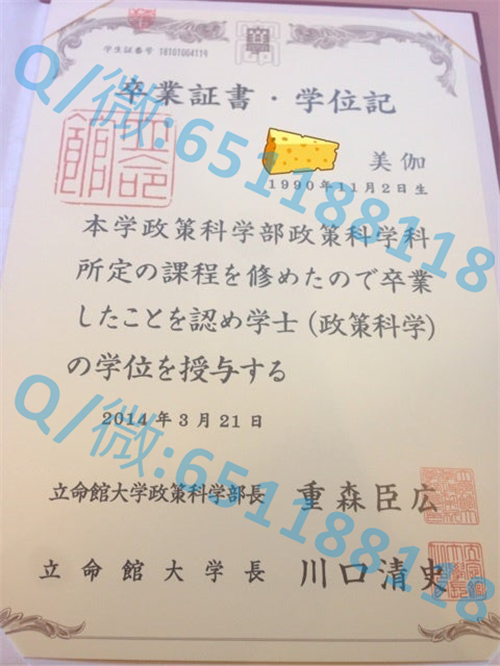 学生証番号 18101004119
卒業証書・学位記
立命館
美伽
1990年11月2日生
本学政策科学部政策科学科
所定の課程を修めたので卒業
したことを認め学士(政策科学)
の学位を授与する
2014年3月21日
立命館大学政策科学部長 重森臣広
立命館大学長 川口清史
Q/微:651188118
Q/微:651188118